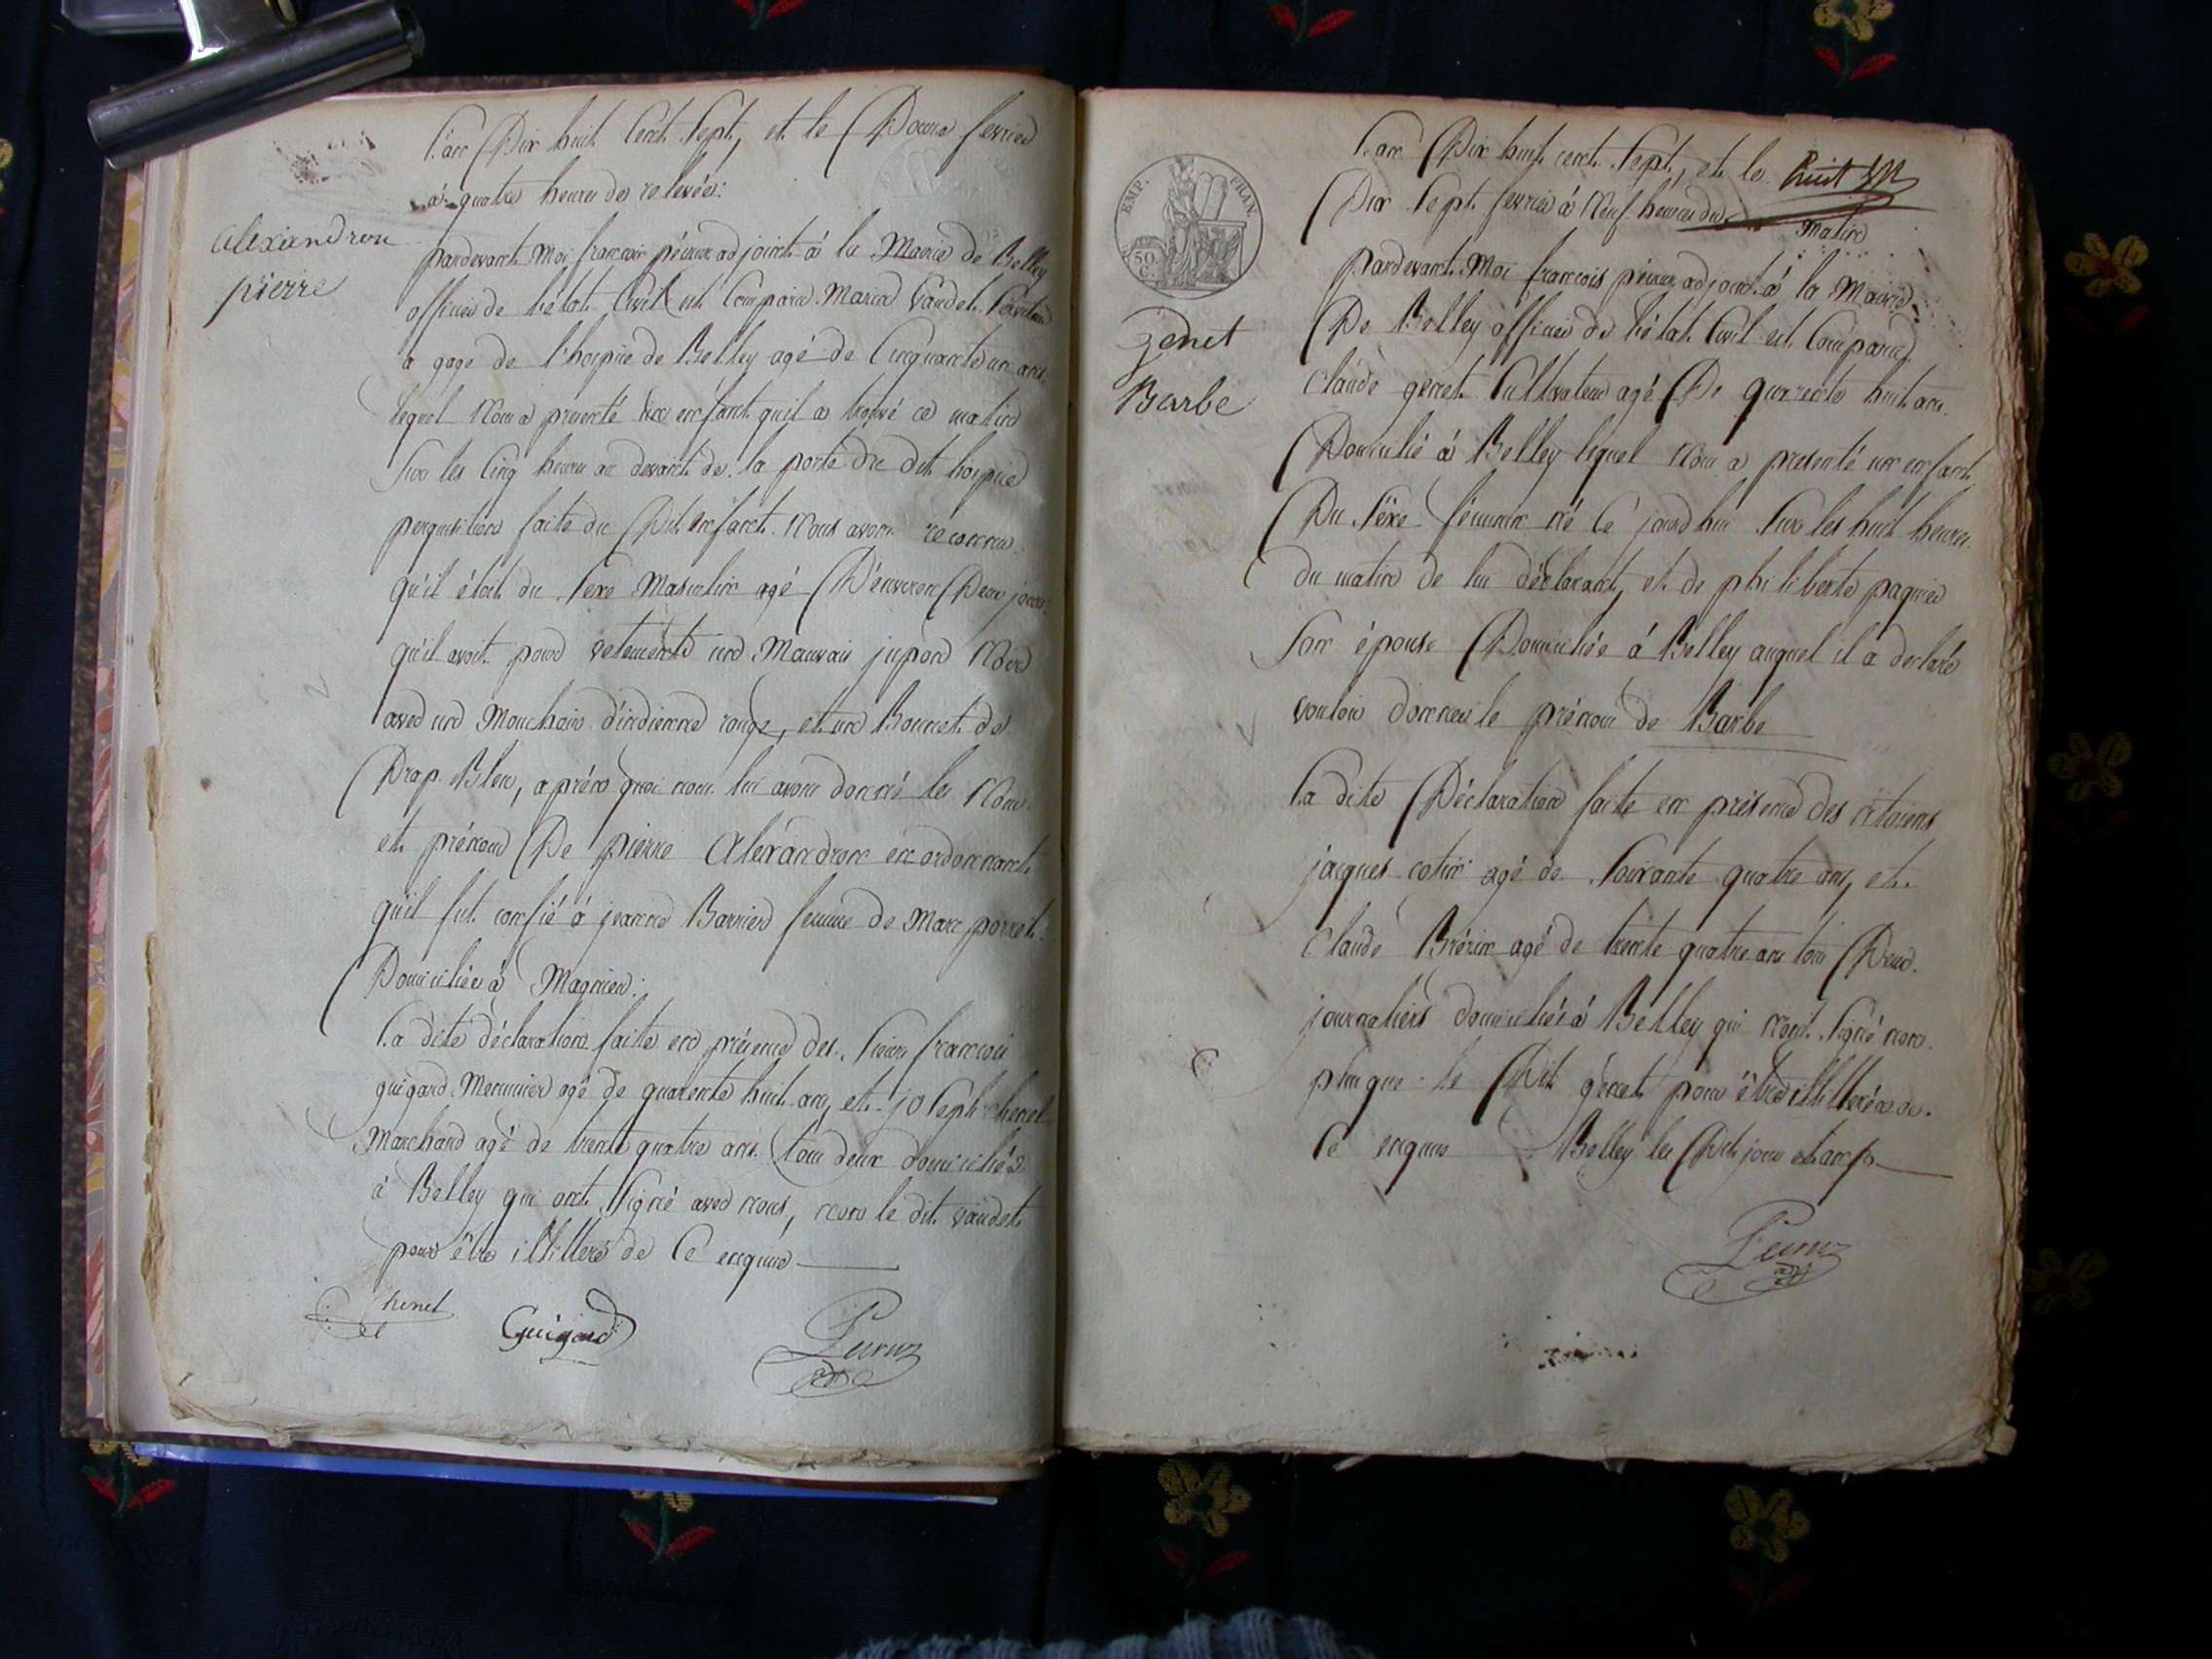 L'an Dix huit Cent Sept, et le Douze fevrier
à quatre heures de relevée:
alexandron
pierre
pardevant Moi francois péuruz adjoint à la Mairie de Belley
officier de l'état Civil est Comparu Marcd Vaudet Serviteur
a gage de l'hospice de Belley agé de Cinquante un ans
lequel Nous a presenté un enfant qu'il a trouvé ce matin
Sur les Cinq heures au devant de la porte du dit hospice
perquisition faite du Dit enfant Nous avons reconnu
qu'il étoit du Sexe Masculin agé D'environ Deux jours
qu'il avoit pour vetements un Mauvais jupon Noir
avec un Mouchoir d'indienne rouge, et un Bonnet de
Drap Bleu, aprés quoi nous lui avons donné les Nom
et prénom De pierre Alexandron en ordonnant
qu'il fut confié à jeanne Barnier femme de Marc porret
Domiciliée à Magnieu.
La dite déclaration faite en présence des Sieurs francois
guigard Menuisier agé de quarente huit ans, et joseph chenel
Marchand agé de trente quatre ans tous deux domiciliés
à Belley qui ont Signé avec nous, non le dit vaudet
pour être illitteré de Ce enquis
Chenel
Guigard
Péuruz
adj
EMP. FRAN.
50
C.
L'an Dix huit cent Sept, et le huit
Dix Sept fevrier à Neuf heures du
matin
genet
Barbe
pardevant Moi francois péuruz adjoint à la Mairie
De Belley officier de l'état Civil est Comparu
Claude genet Cultivateur agé De quarante huit ans
Domicilié à Belley lequel Nous a presenté un enfant
Du Sexe féminin né Ce jourd'hui Sur les huit heures
du matin de lui déclarant, et de philiberte paquier
Son épouse Domiciliée à Belley auquel il a declaré
vouloir donner le prénom de Barbe
La dite Déclaration faite en présence des citoiens
jacques cotin agé de Soixante quatre ans, et
Claude Brézin agé de trente quatre ans tous Deux
journaliers domiciliés à Belley qui n'ont Signé non
plus que le Dit genet pour être illitterés de
Ce enquis Belley les Dits jour et an
Péuruz
adj